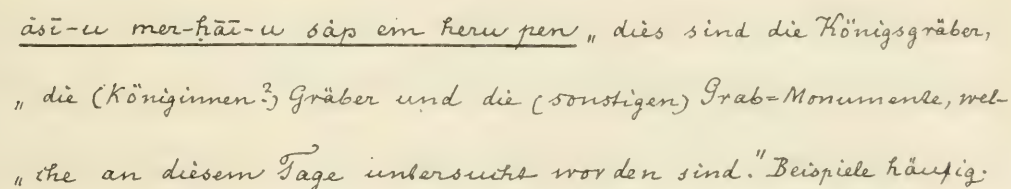 āsī-u mer-ḥāī-u sàp em heru pen „ diès sind die Königsgräber,
„ die (Königinnen?) Gräber und die (sonstigen) Grab=Monumente, wel-
„ che an diesem Tage untersucht worden sind." Beispiele häufig.